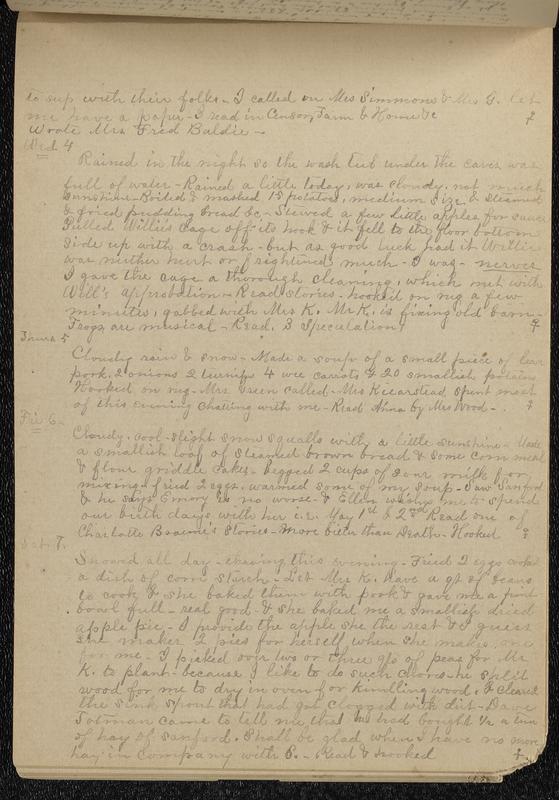 to sup with their folks - I called on Mrs Simmons & Mrs G. let
me have a paper - I read in Censor, Farm & Home &c
Wrote Mrs Fred Baldie -
Wed 4
Rained in the night so the wash tub under the eaves was
full of water - Rained a little today, was cloudy, not much
sunshine - Boiled & mashed 15 potatoes, medium size & steamed
& fried pudding bread &c. - Stewed a few little apples for sauce
Pulled Willies cage off its hook & it fell to the floor bottom
side up with a crash - but as good luck had it Willie
was neither hurt or frightened much - I was - nerves
I gave the cage a thorough cleaning, which met with
Will's approbation - Read stories - hook'd on rug a few
minutes, gabbed with Mrs K. Mr K. is fixing old barn -
Frogs are musical - Read, B Speculation
Thurs 5
Cloudy rain & snow - Made a soup of a small piece of lean
pork, 2 onions 2 turnips 4 wee carrots & 20 smallish potatoes
Hooked on rug - Mrs Green called - Mrs Kicarstead spent most
of this evening chatting with me - Read Anna by Mrs Wood -
Fri 6
Cloudy - cool - slight snow squalls with a little sunshine - Made
a smallish loaf of steamed brown bread & some corn meal
& flour griddle cakes - Begged 2 cups of sour milk for
mixing - fried 2 eggs, warmed some of my soup - Saw Sanford
& he says Emory is no worse - & Ellen wants me to spend
our birth days with her i.e. May 1st & 2nd Read one of
Charlotte Braeme's Stories - More bitter than Death - Hooked
Sat 7.
Snowed all day - thawing this evening - Fried 2 eggs cooked
a dish of corn starch - Let Mrs K. have a qt of beans
to cook & she baked them with pork & gave me a pint
bowl full - real good - & she baked me a smallish dried
apple pie - I provide the apple she the rest & I guess
she makes 2 pies for herself when she makes one
for me - I picked over two or three qts of peas for Mr
K. to plant - because I like to do such chores - he split
wood for me to dry in oven for kindling wood. I cleaned
the sink spout that had got clogged with dirt - Dave
Totman came to tell me that he had bought 1/2 a ton
of hay of Sanford. Shall be glad when I have no more
hay in Company with S. - Read & hooked